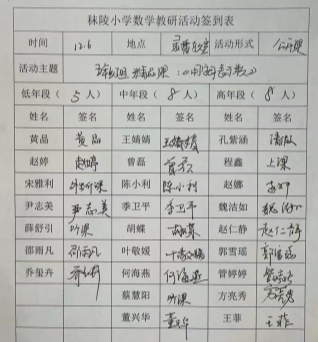 秣陵小学数学教研活动签到表
时间 12.6 地点 活动形式 公开课
活动主题
低年段（5人） 中年段（8人） 高年段（8人）
姓名 签名 姓名 签名 姓名 签名
黄晶 黄晶 王婧婧 王婧婧 孔紫涵
赵婷 赵婷 曾磊 曾磊 程鑫 上课
宋雅利 听课 陈小利 陈小利 赵娜 赵娜
尹志美 尹志美 季卫平 季卫平 魏洁如 魏洁如
薛舒引 听课 胡蝶 胡蝶 赵仁静 赵仁静
邵雨凡 邵雨凡 叶敬媛 叶敬媛 郭雪瑶 郭雪瑶
乔玺卉 乔玺卉 何海燕 何海燕 管婷婷 管婷婷
蔡慧阳 听课 方亮秀 方亮秀
董兴华 董兴华 王菲 王菲